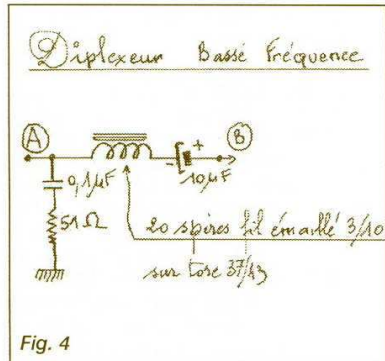 Diplexeur Basse Fréquence
A
B
- +
0,1µF
10µF
51Ω
20 spires fil émaillé 3/10
sur tore 37/43
Fig. 4